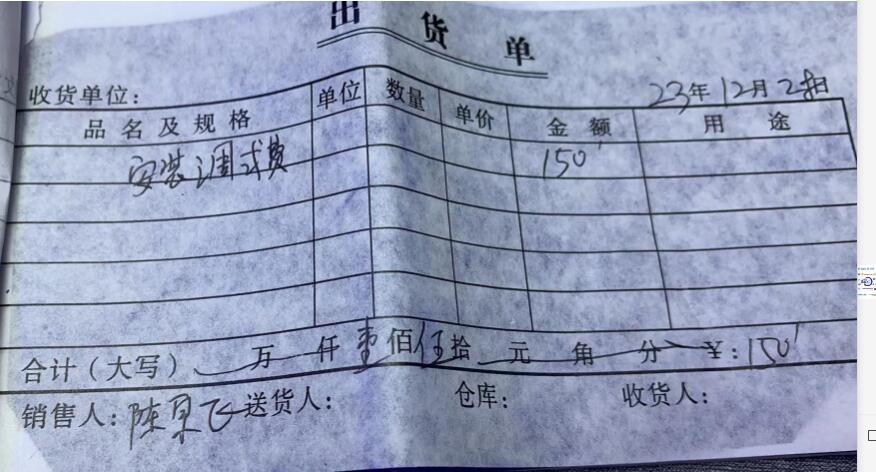 出货单
收货单位:
23年12月2日
品名及规格 单位 数量 单价 金额 用途
安装调式费 150
合计(大写) 万 仟 壹佰伍拾 元 角 分 ¥:150
销售人: 陈 飞 送货人: 仓库: 收货人: